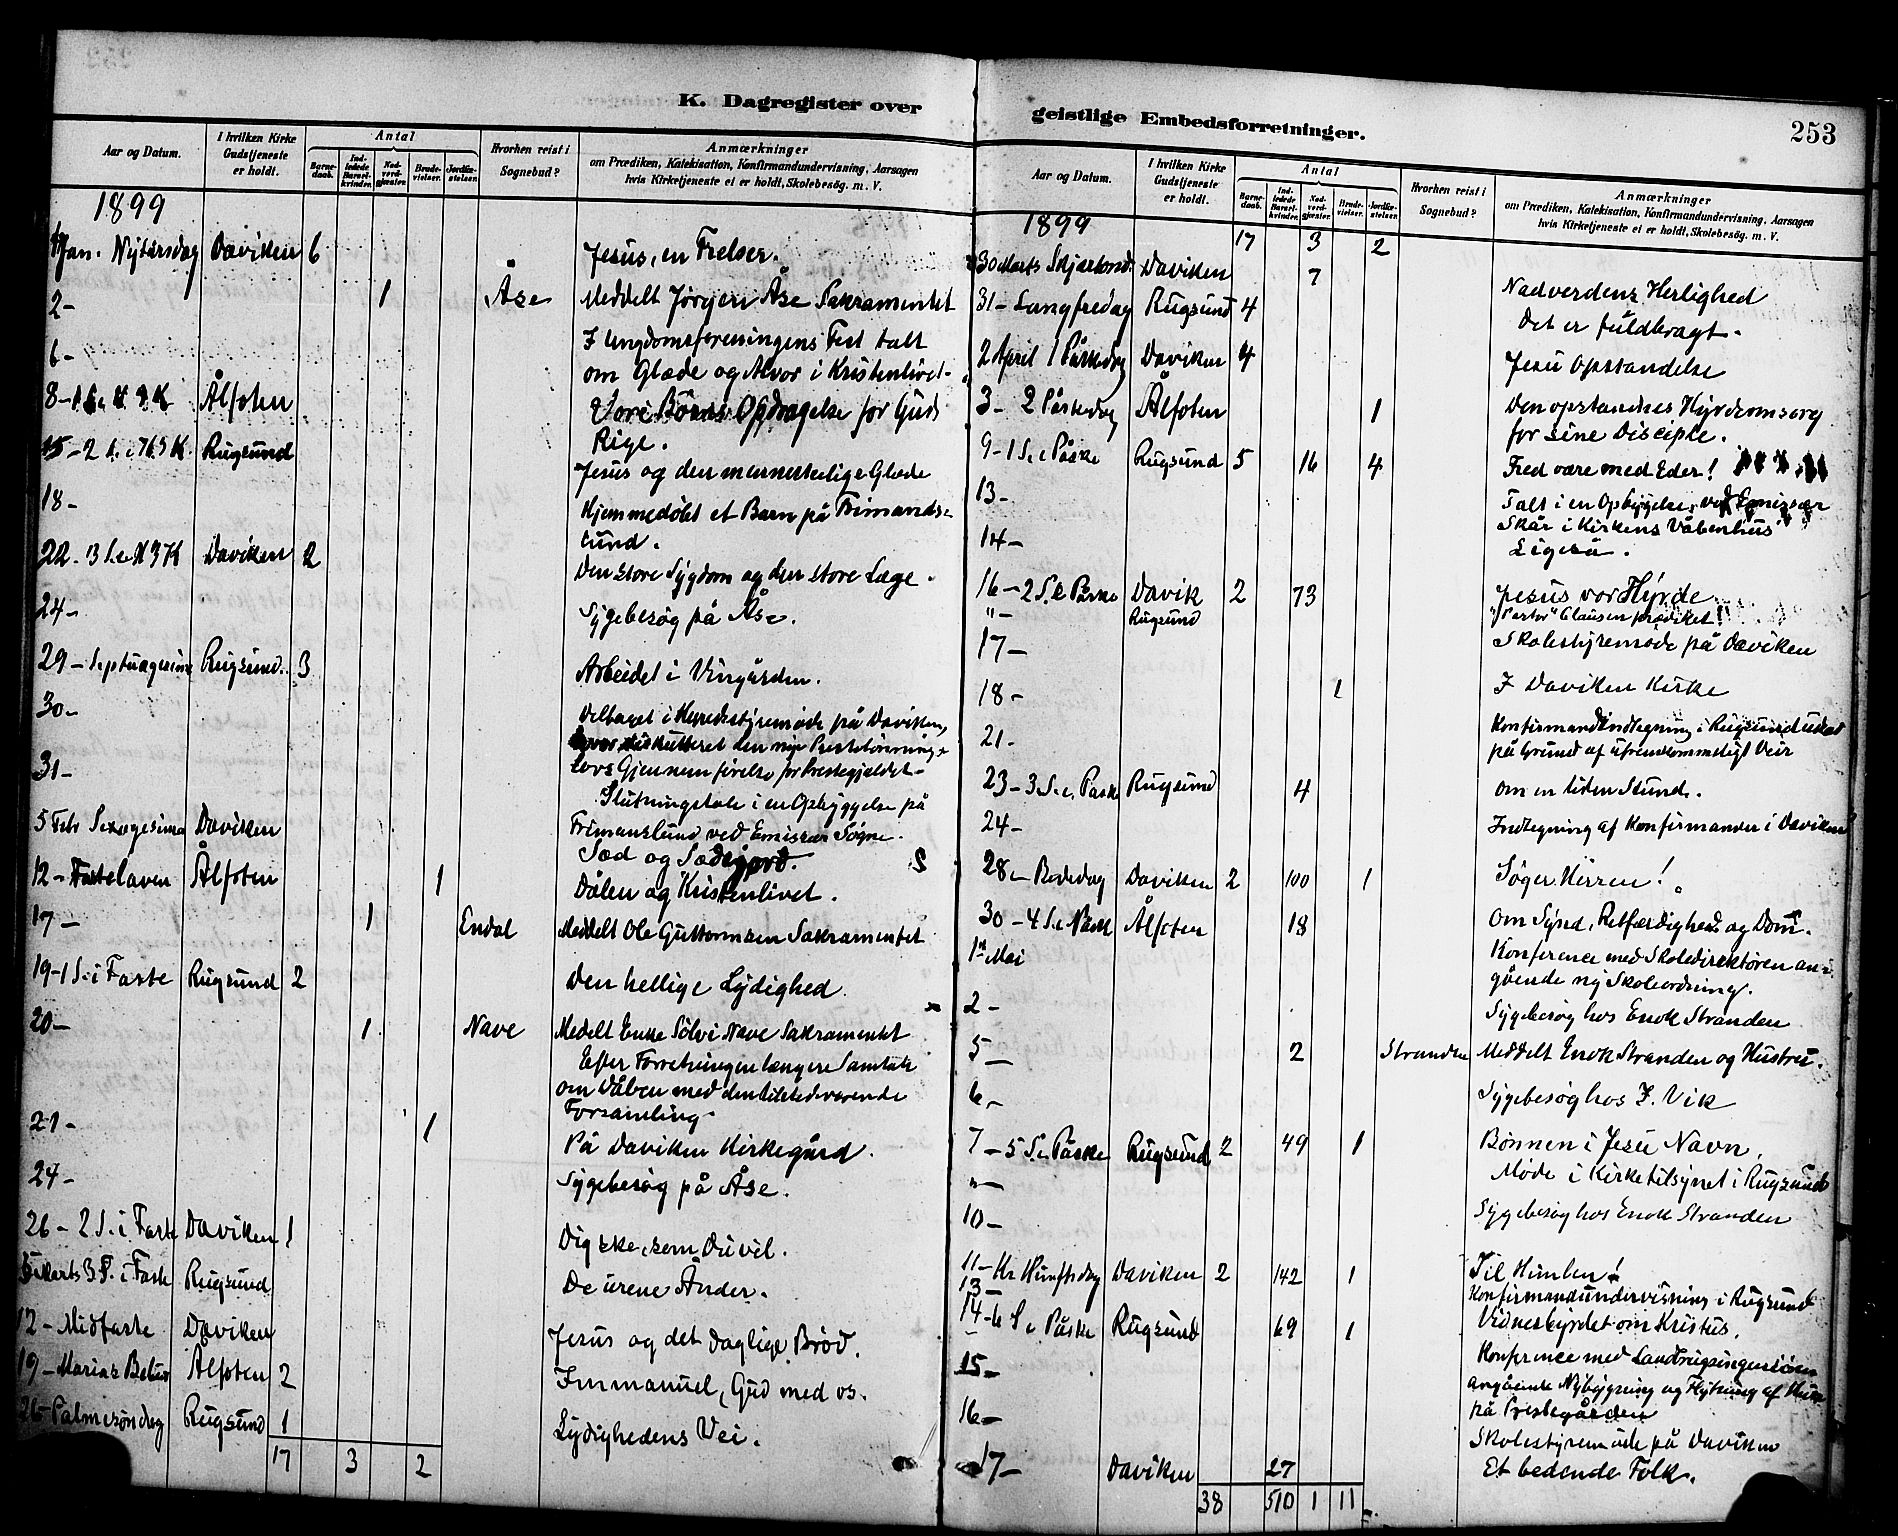 K. Dagregister over
Aar og Datum.
I hvilken Kirke Gudstjeneste er holdt.
Antal
Barnedaab.
Indledede Barselkvinder.
Nadverdgjæster.
Brudevielser.
Jordfæstelser.
Hvorhen reist i Sognebud?
Anmærkninger
om Prædiken, Katekisation, Konfirmandundervisning, Aarsagen
hvis Kirketjeneste ei er holdt, Skolebesøg. m. V.
1899
Jan. Nytårsdag Daviken 6 Jesus, en Frelser.
2- 1 Åse Meddelt Jørgen Åse Sakramentet
6- I Ungdomsforeningens Fest talt
om Glæde og Alvor i Kristenlivet-
8- Ålfoten Vore Børns Opdragelse for Guds
Rige.
15- Rugsund Jesus og den menneskelige Glæde
18- Hjemmedøbt et Barn på Frimands-
lund.
22. Daviken 2 Den store Sygdom og den store Læge.
24- Sygebesøg på Åse.
29- Septuagesima Rugsund. 3 Arbeidet i Vingården.
30- Deltaget i Herredsstyremøde på Daviken,
hvor diskutteret den nye Prestelønnings-
lovs Gjennemførelse for Prestegjeldet-
31- Slutningstale i en Opbyggelse på
Frimanslund ved Emissær Søgne.
5 Febr Sexagesima Daviken Sæd og Sædejord. S
12- Fastelaven Ålfoten 1 Dåben og Kristenlivet.
17- 1 Endal Meddelt Ole Guttormsen Sakramentet
19-1 S. i Faste Rugsund 2 Den hellige Lydighed.
20- 1 Nave Medelt Enke Sølvi Nave Sakramentet
Efter Forretningen længere Samtale
om Dåben med den tilstedeværende
Forsamling-
21- 1 På Daviken Kirkegård.
24- Sygebesøg på Åse.
26- 2 S. i Faste Daviken 1 Dig ske, som Du vil.
5 Marts 3 S. i Faste Rugsund De urene Ånder.
12- Midfaste Daviken Jesus og det daglige Brød.
19- Marias Ålfoten 2 Immanuel, Gud med os.
26- Palmesøndag Rugsund 1 Lydighedens Vei.
17 3 2
geistlige Embedsforretninger.
253
Aar og Datum.
I hvilken Kirke Gudstjeneste er holdt.
Antal
Barnedaab.
Indledede Barselkvinder.
Nadverdgjæster.
Brudevielser.
Jordfæstelser.
Hvorhen reist i Sognebud?
Anmærkninger
om Prædiken, Katekisation, Konfirmandundervisning, Aarsagen
hvis Kirketjeneste ei er holdt, Skolebesøg. m. V.
1899 17 3 2
30 Marts Skjærtorsd. Daviken 7 Nadverdens Herlighed
31- Langfredag Rugsund 4 Det er fuldbragt.
2 April 1 Påskedag Daviken 4 Jesu Opstandelse
3- 2 Påskedag Ålfoten 1 Den opstandnes Hyrdeomsorg
for sine Disciple.
9-1 S. e Påske Rugsund 5 16 4 Fred være med Eder!
13- Talt i en Opbyggelse ved Emissær
Skår i Kirkens Våbenhus
14- Ligeså.
16-2 S. e Påske Davik 2 73 Jesus vor Hyrde
"- Rugsund "Pastor" Clausen prædiket!
17- Skolestyremøde på Daviken
18- 1 I Daviken Kirke
21- Konfirmandindtegning i Rugsund
på Grund af ufremkommeligt Veir
23-3 S. e. Påske Rugsund 4 Om en liden Stund.
24- Indtegning af Konfirmander i Daviken
28- Bededag Daviken 2 100 1 Søger Herren!
30-4 S. e Påske Ålfoten 18 Om Synd, Retfærdighed og Dom.
1ste Mai Konference med Skoledirektøren an-
gående ny Skoleordning.
2- Sygebesøg hos Enok Stranden
5- 2 Stranden Meddelt Enok Stranden og Hustru.
6- Sygebesøg hos I. Vik
7-5 S. e Påske Rugsund 2 49 1 Bønnen i Jesu Navn.
"- Møde i Kirketilsynet i Rugsund
10- Sygebesøg hos Enok Stranden
11-Kr Himfsdag Daviken 2 142 1 Til Himlen!
13- Konfirmandundervisning i Rugsund
14-6 S. e Påske Rugsund 69 1 Vidnesbyrdet om Kristus.
15- Konference med Landbrugsingeniøren
angående Nybygning og Flytning af Huse
på Prestegården
16- Skolestyremøde på Daviken
17- Daviken 27 Et bedende Folk.
38 510 1 11